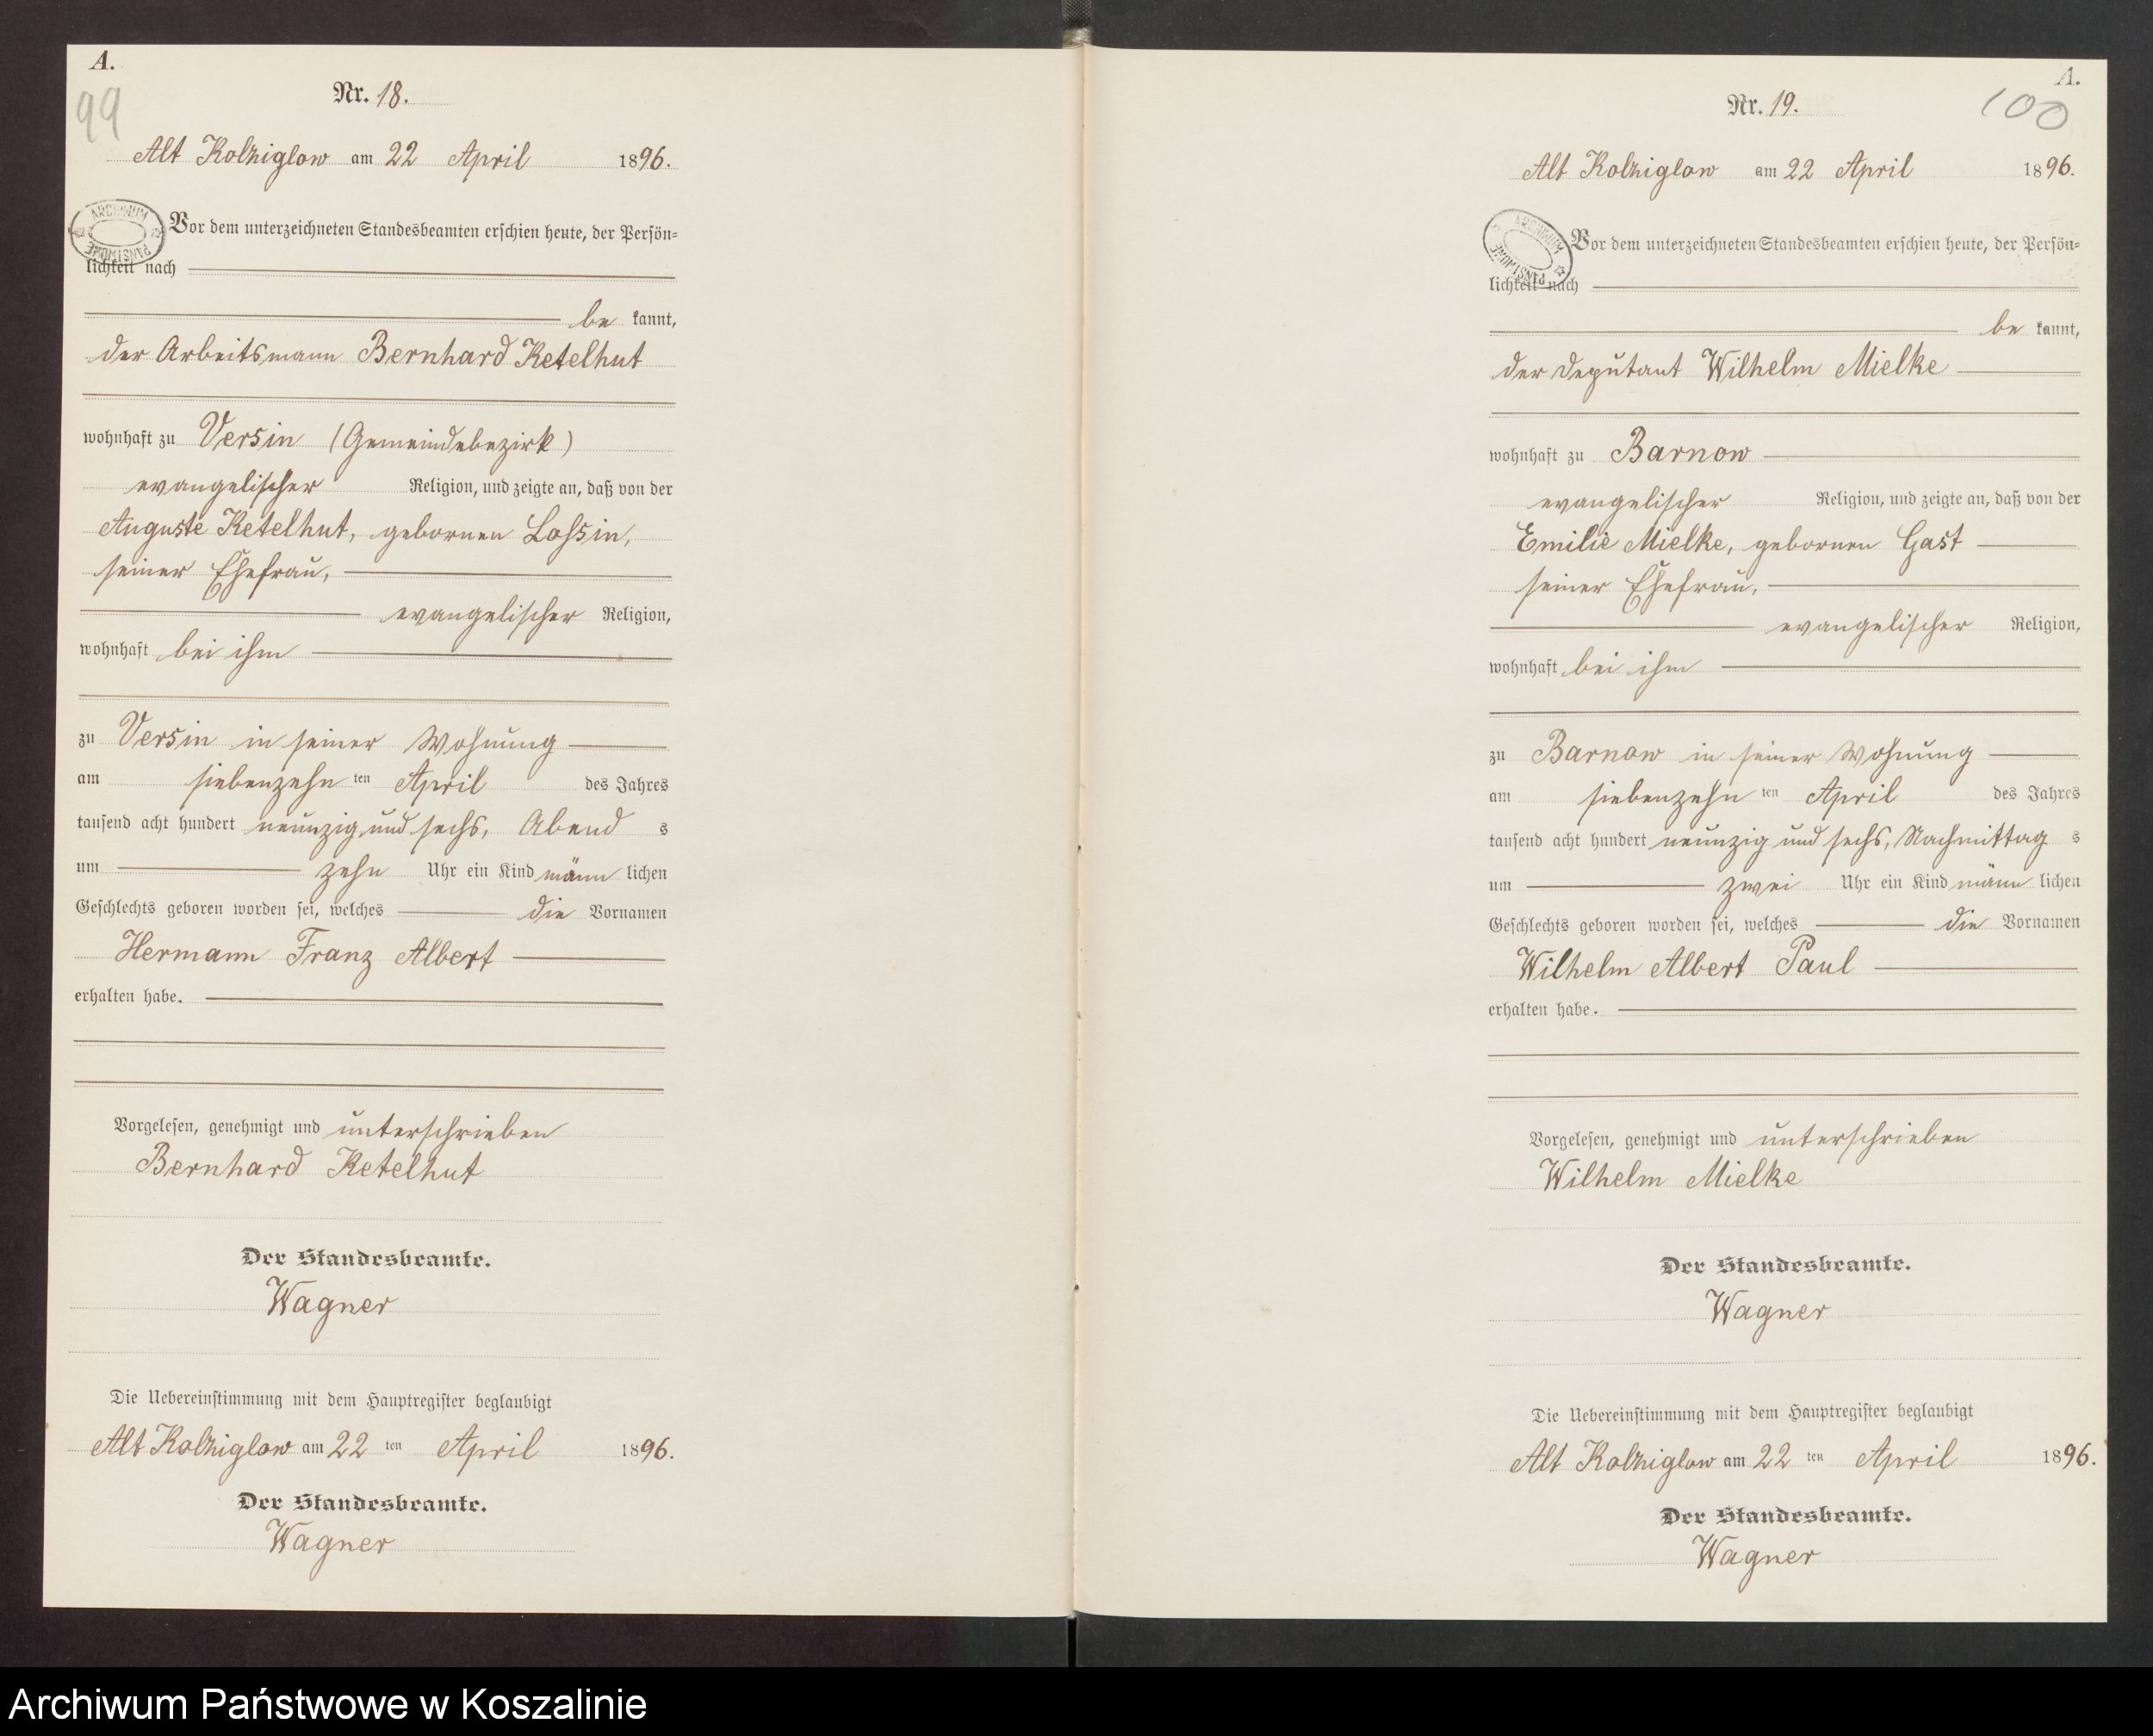 A.
99
Nr. 18.
Alt Kolziglow am 22 April 1896.
ARCHIWUM PAŃSTWOWE
Vor dem unterzeichneten Standesbeamten erschien heute, der Persön=
lichkeit nach
be kannt,
der Arbeitsmann Bernhard Ketelhut
wohnhaft zu Versin (Gemeindebezirk)
evangelischer Religion, und zeigte an, daß von der
Auguste Ketelhut, gebornen Lassin,
seiner Ehefrau,
evangelischer Religion,
wohnhaft bei ihm
zu Versin in seiner Wohnung
am siebenzehn ten April des Jahres
tausend acht hundert neunzig und sechs, Abend s
um zehn Uhr ein Kind männ lichen
Geschlechts geboren worden sei, welches die Vornamen
Hermann Franz Albert
erhalten habe.
Vorgelesen, genehmigt und unterschrieben
Bernhard Ketelhut
Der Standesbeamte.
Wagner
Die Uebereinstimmung mit dem Hauptregister beglaubigt
Alt Kolziglow am 22 ten April 1896.
Der Standesbeamte.
Wagner
A.
100
Nr. 19.
Alt Kolziglow am 22 April 1896.
ARCHIWUM PAŃSTWOWE
Vor dem unterzeichneten Standesbeamten erschien heute, der Persön=
lichkeit nach
be kannt,
der Deputant Wilhelm Mielke
wohnhaft zu Barnow
evangelischer Religion, und zeigte an, daß von der
Emilie Mielke, gebornen Gast
seiner Ehefrau,
evangelischer Religion,
wohnhaft bei ihm
zu Barnow in seiner Wohnung
am siebenzehn ten April des Jahres
tausend acht hundert neunzig und sechs, Nachmittag s
um zwei Uhr ein Kind männ lichen
Geschlechts geboren worden sei, welches die Vornamen
Wilhelm Albert Paul
erhalten habe.
Vorgelesen, genehmigt und unterschrieben
Wilhelm Mielke
Der Standesbeamte.
Wagner
Die Uebereinstimmung mit dem Hauptregister beglaubigt
Alt Kolziglow am 22 ten April 1896.
Der Standesbeamte.
Wagner
Archiwum Państwowe w Koszalinie